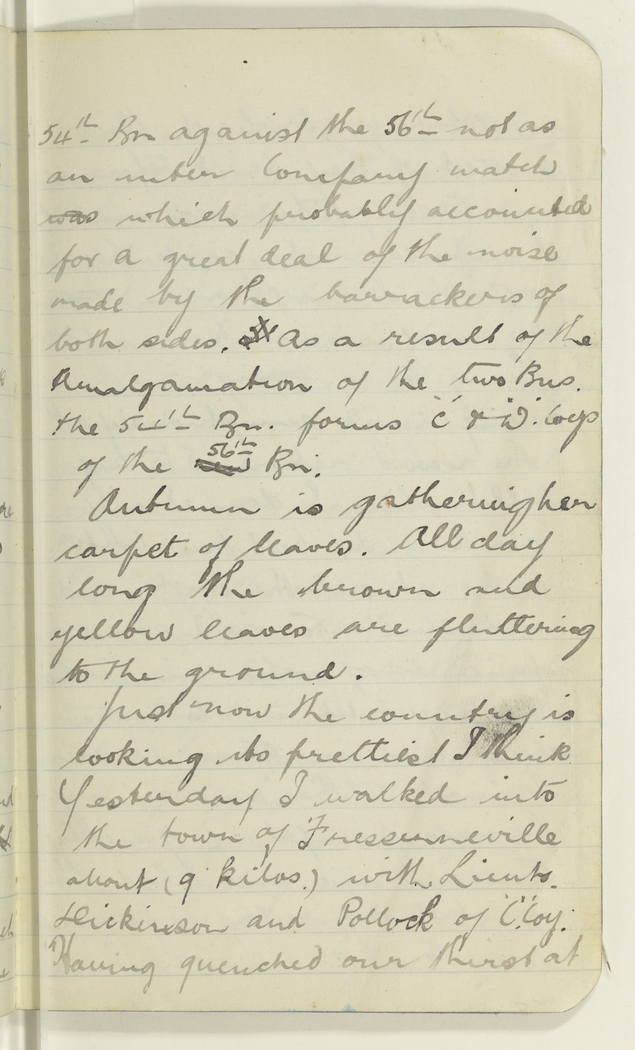 54th Bn against the 56th not as
an inter Company match
was which probably accounted
for a great deal of the noise
made by the barrackers of
both sides. As a result of the
Amalgamation of the two Bns.
the 54th Bn. forms "C" & "D". Coys
of the 56th Bn.
Autumn is gathering her
carpet of leaves. All day
long the brown and
yellow leaves are fluttering
to the ground.
Just now the country is
looking its prettiest I think
Yesterday I walked into
the town of Fressenneville
about (9 kilos.) with Lieuts.
Dickinson and Pollock of "C" Coy.
Having quenched our thirst at